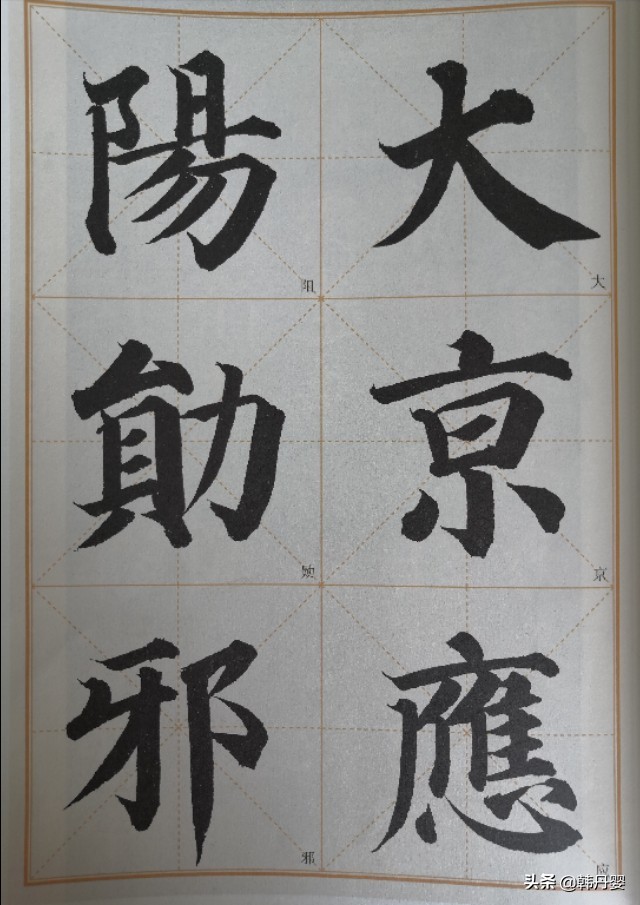 大
大
京
京
應
应
陽
阳
勛
邪
邪
头条 @韩丹婴